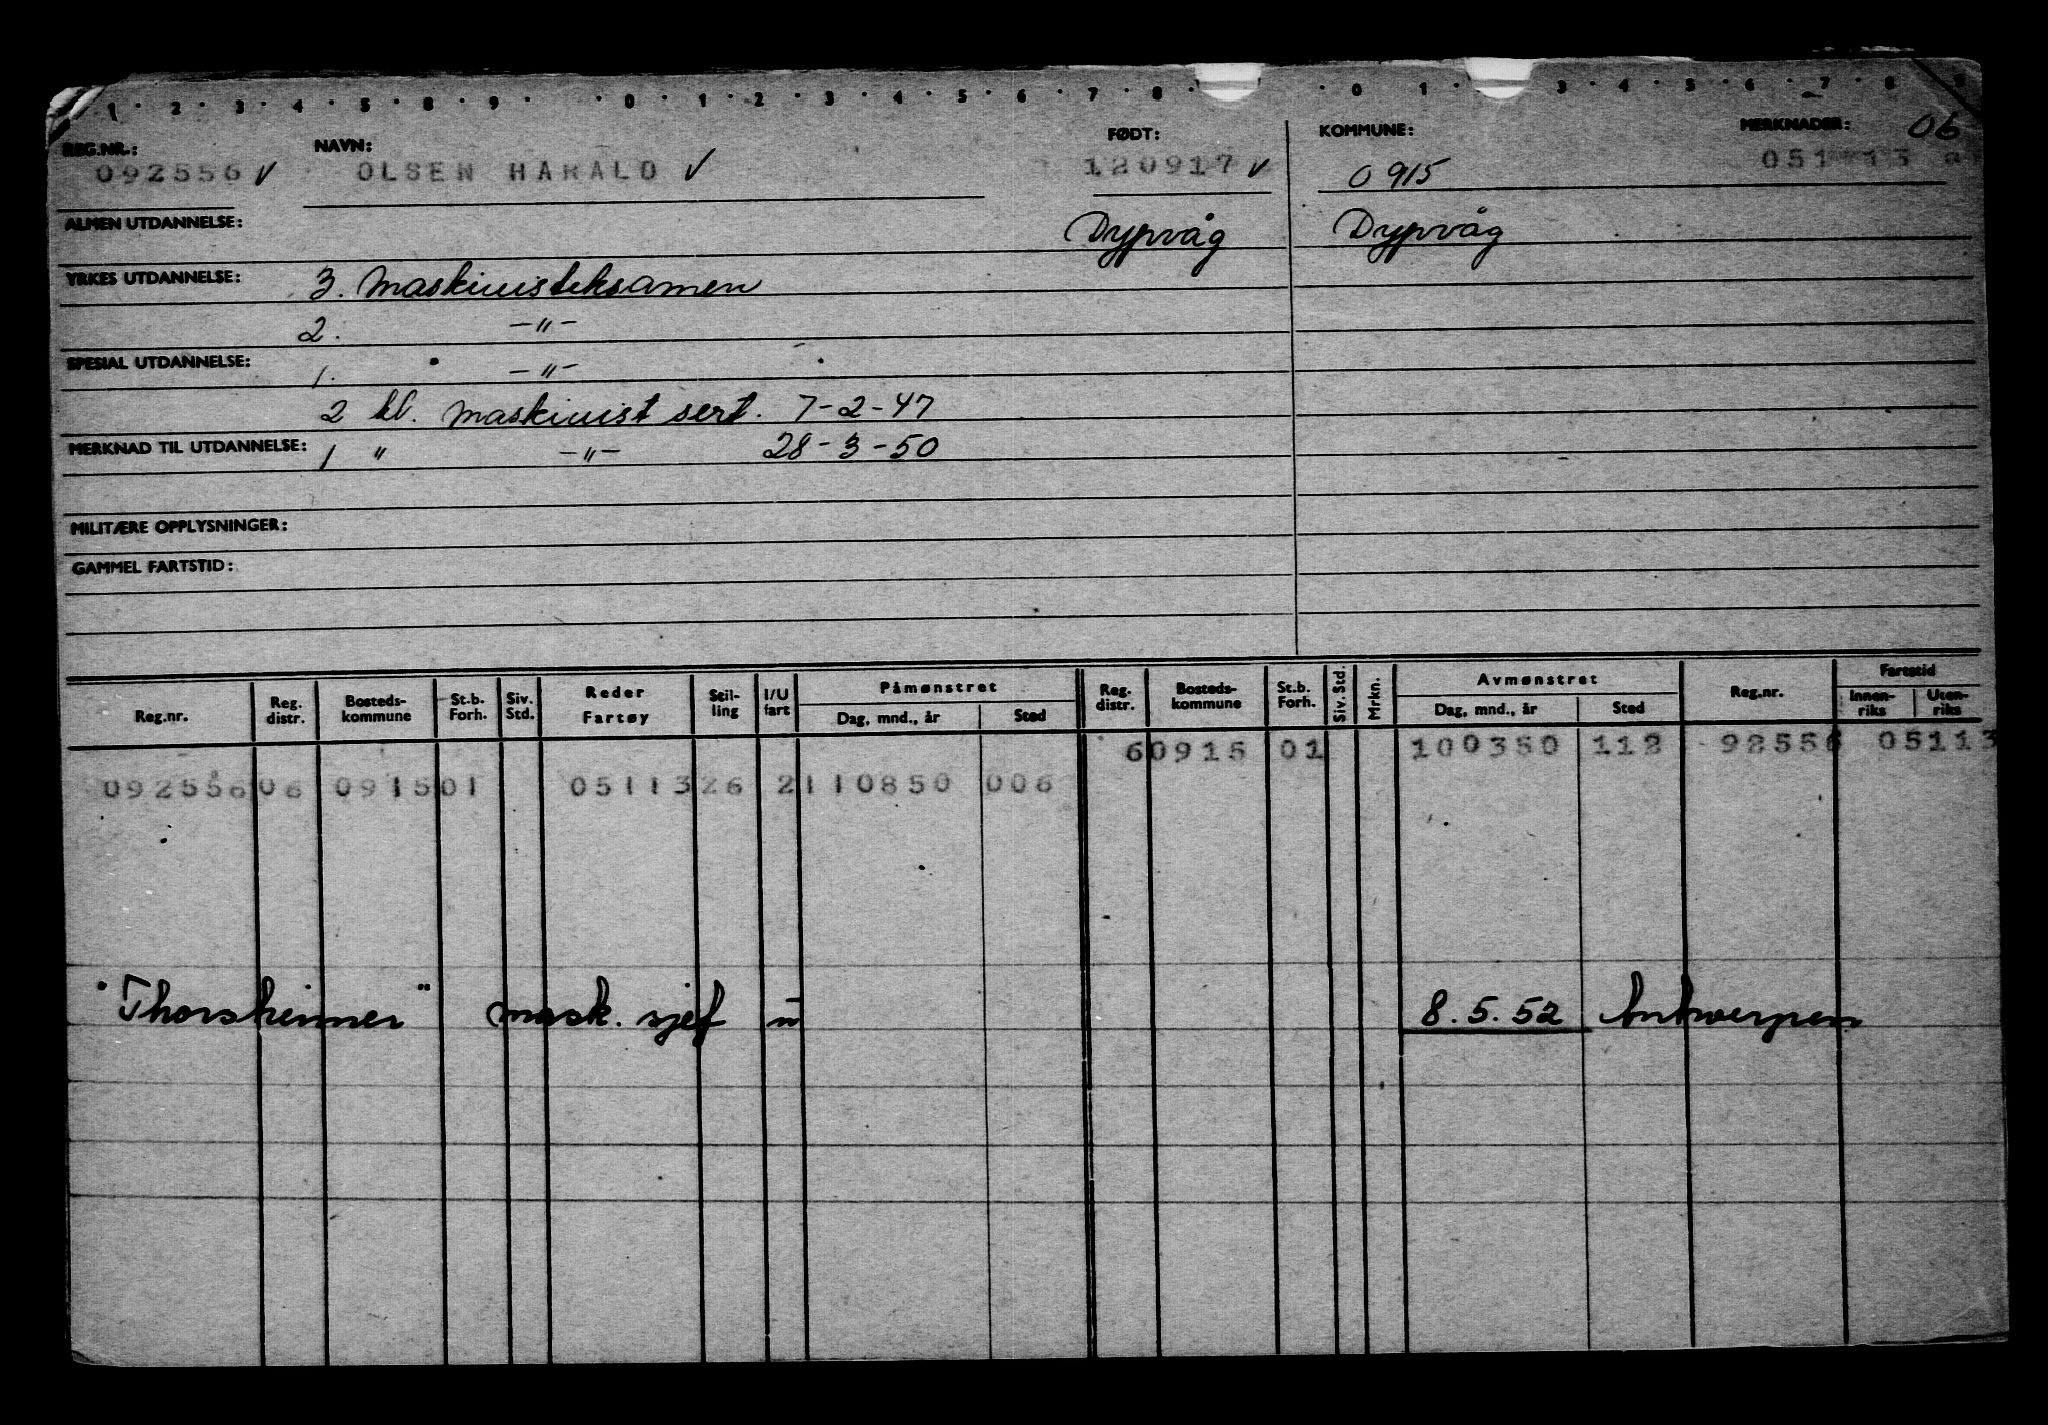 1 2 3 4 5 8 9 0 1 2 3 4 5 6 7 8 0 1 3 4 5 6 7 8 9
REG.NR.: NAVN: FØDT: KOMMUNE: MERKNADER: 06
092556 ✓ OLSEN HARALD ✓ 120917 ✓ 0915
ALMEN UTDANNELSE: Dypvåg Dypvåg
YRKES UTDANNELSE: 3. Maskinisteksamen
2. -"-
SPESIAL UTDANNELSE: 1. -"-
2 kl. maskinist sert. 7-2-47
MERKNAD TIL UTDANNELSE: 1 " -"- 28-3-50
MILITÆRE OPPLYSNINGER:
GAMMEL FARTSTID:
Reg.nr. Reg. distr. Bosteds-kommune St.b. Forh. Siv. Std. Reder Fartøy Stil-ling I/U fart Påmønstret Dag, mnd., år Sted Reg. distr. Bosteds-kommune St.b. Forh. Siv. Std. Mrkn. Avmønstret Dag, mnd., år Sted Reg.nr. Fartstid Innen-riks Uten-riks
60915 01 100350 112 92556 05113
092556 06 0915 01 05113 26 2 110850 006
"Thorskimmer" mask. sjef u 8.5.52 Antwerpen